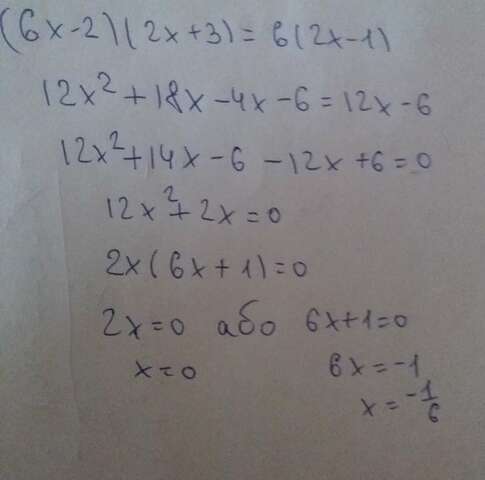 (6x-2)(2x+3)=6(2x-1)
12x²+18x-4x-6=12x-6
12x²+14x-6-12x+6=0
12x²+2x=0
2x(6x+1)=0
2x=0 або 6x+1=0
x=0 6x=-1
x=-1/6